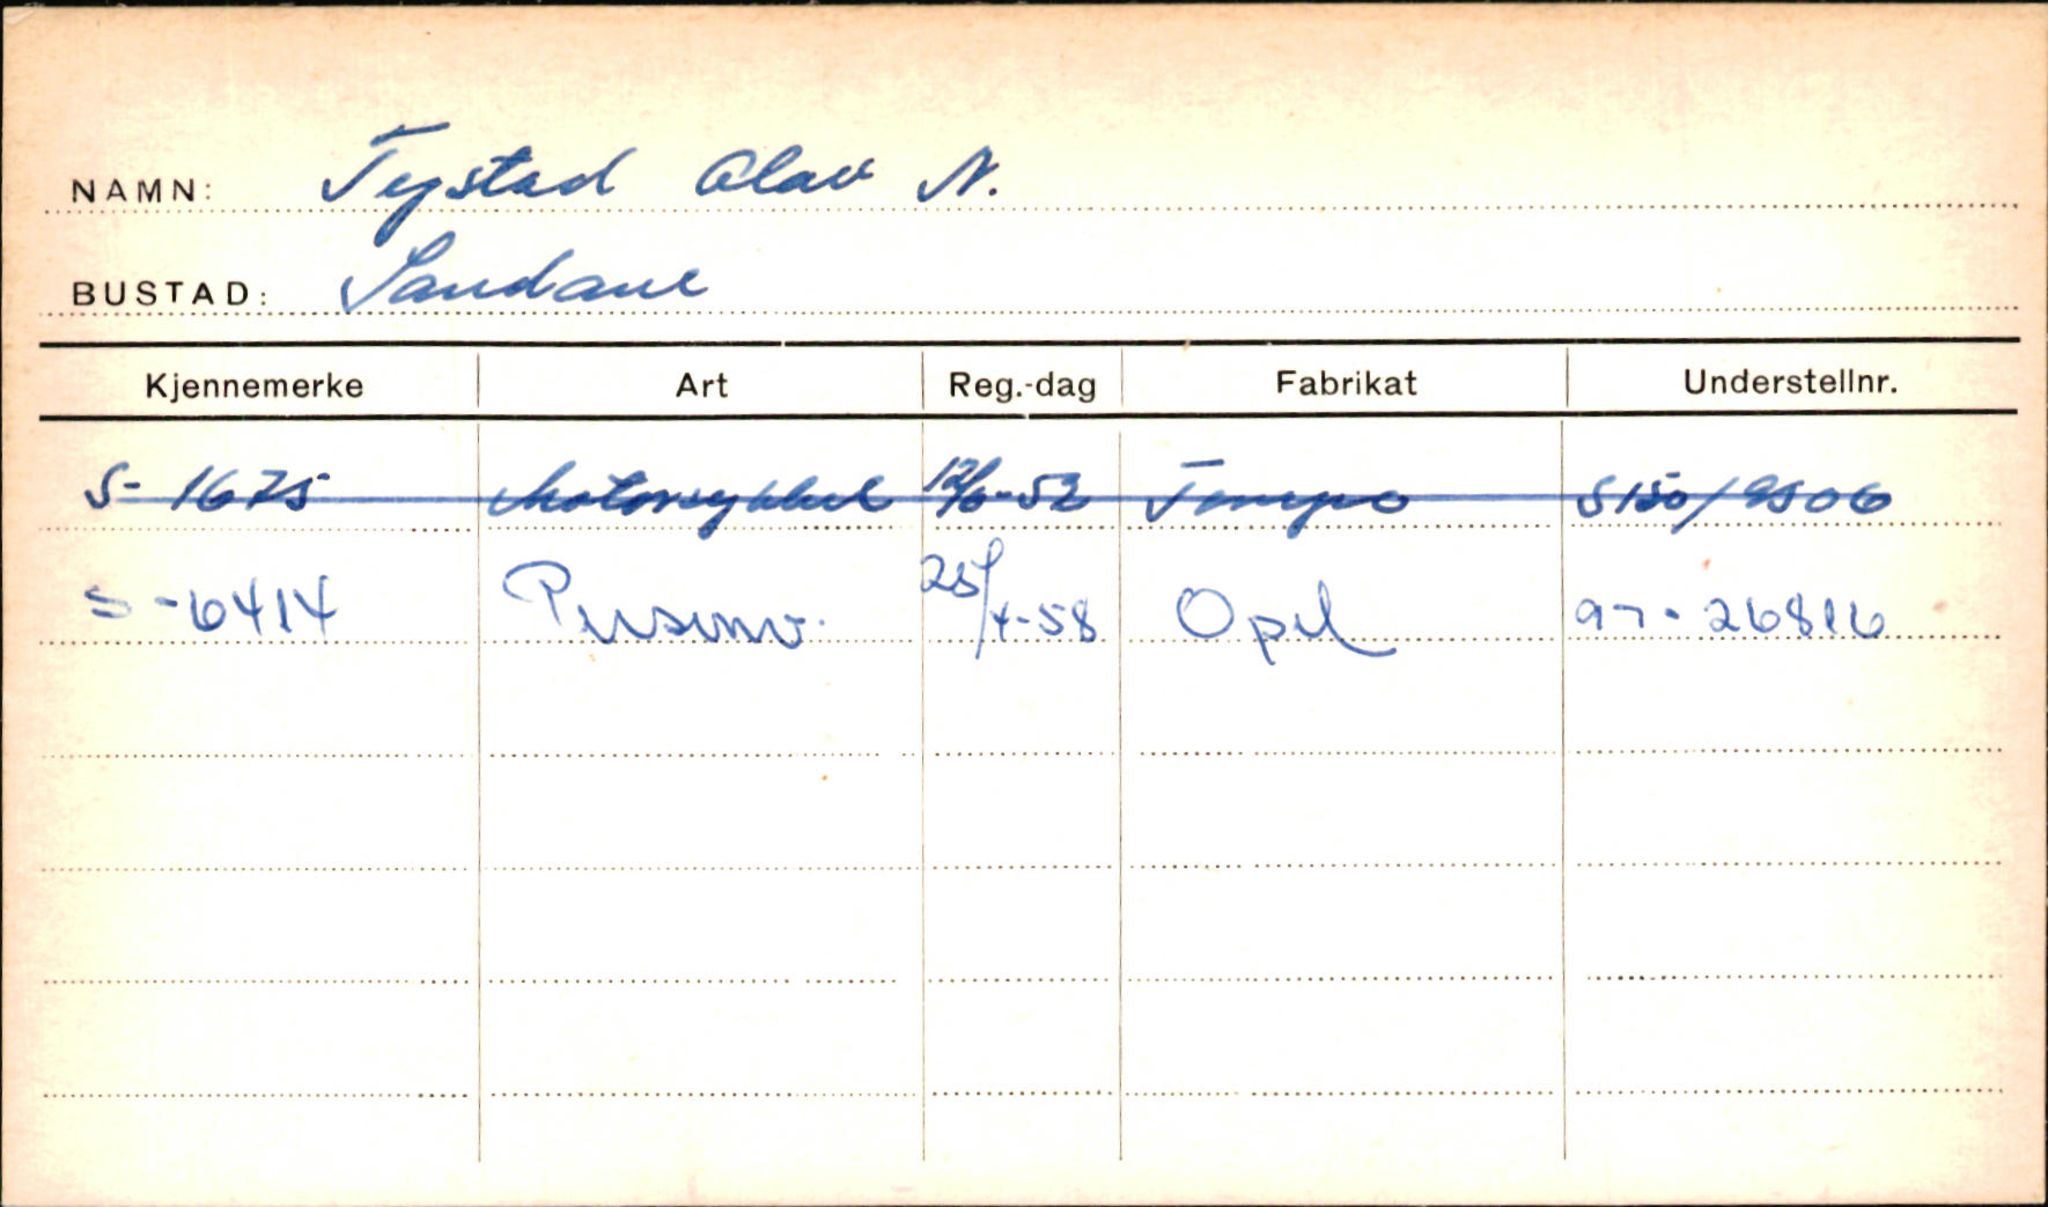 NAMN: Tystad Olav N.
BUSTAD: Sandane
Kjennemerke Art Reg.-dag Fabrikat Understellnr.
S- 1675 Motorsykkel 12/6-52 Tempo S150/9506
S-6414 Personv. 25/4-58 Opel 97-26816